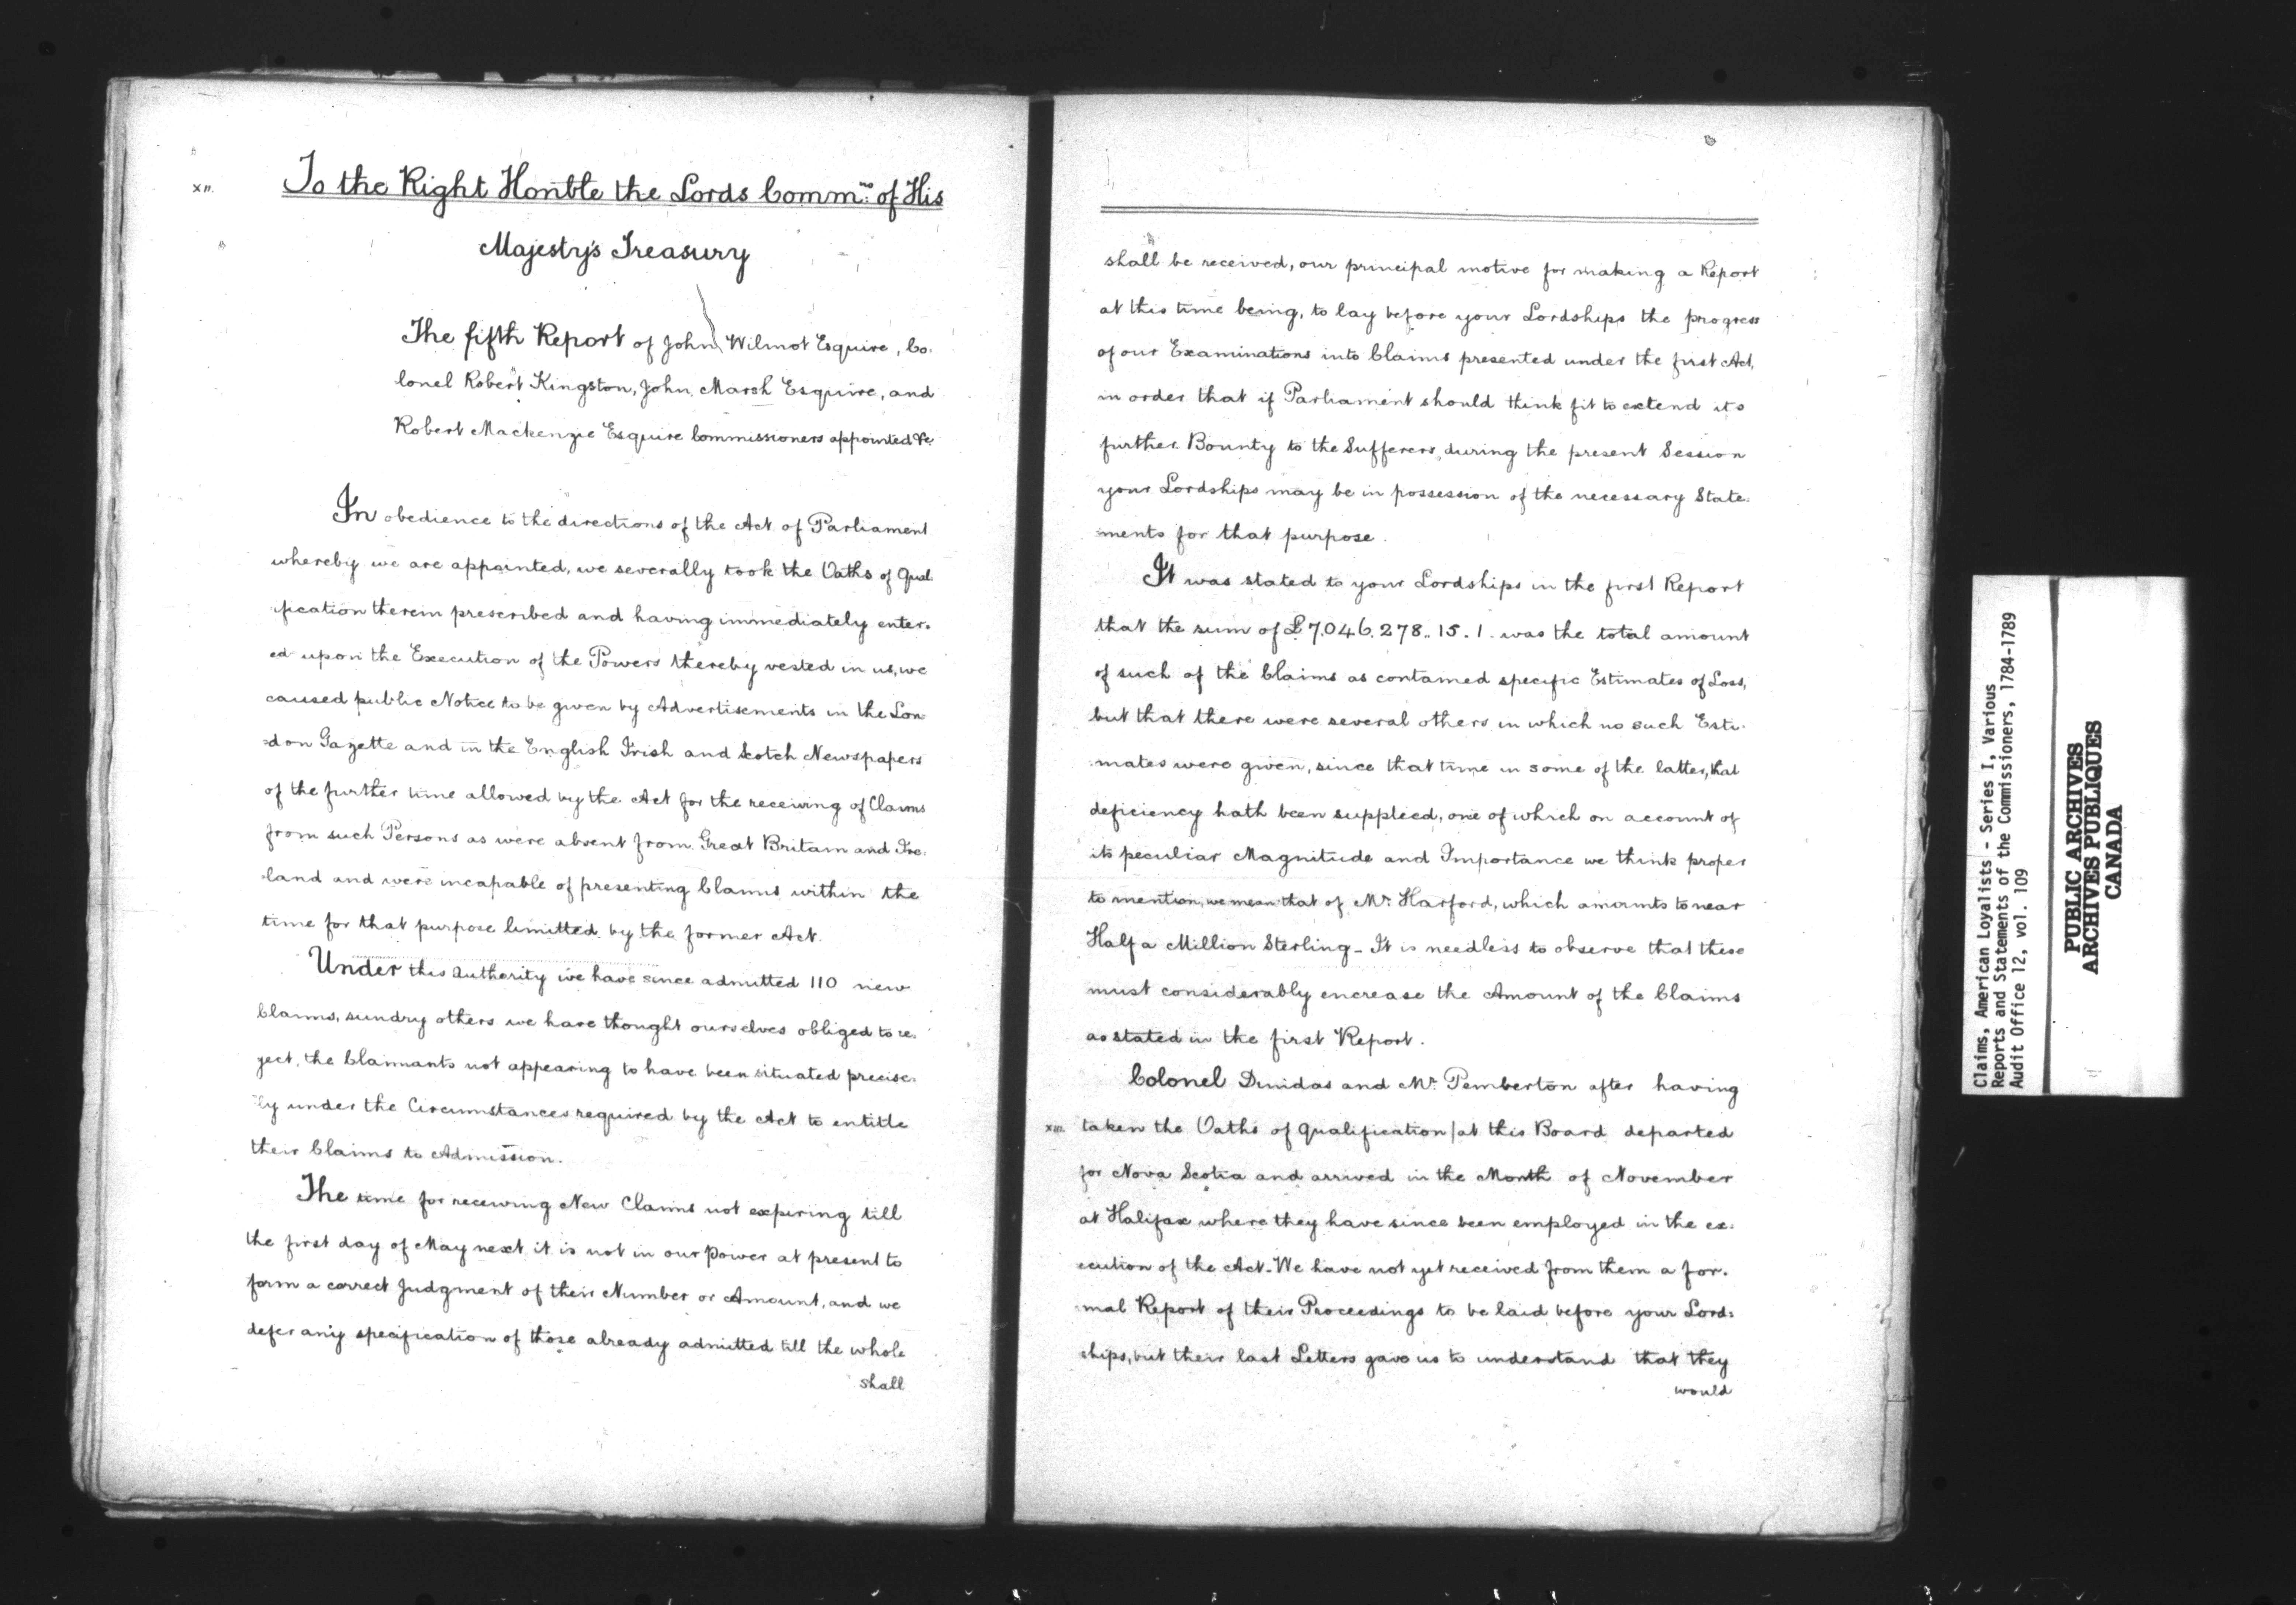 XII.
To the Right Honble the Lords Comm.rs of His
Majesty's Treasury
The fifth Report of John Wilmot Esquire, Co-
lonel Robert Kingston, John Marsh Esquire, and
Robert Mackenzie Esquire Commissioners appointed &c.
In obedience to the directions of the Act of Parliament
whereby we are appointed, we severally took the Oaths of Qual-
ification therein prescribed and having immediately enter-
ed upon the Execution of the Powers thereby vested in us, we
caused public Notice to be given by Advertisements in the Lon-
-don Gazette and in the English Irish and Scotch Newspapers
of the further time allowed by the Act for the receiving of Claims
from such Persons as were absent from Great Britain and Ire-
-land and were incapable of presenting Claims within the
time for that purpose limitted by the former Act.
Under this authority we have since admitted 110 new
Claims, sundry others we have thought ourselves obliged to re-
ject, the Claimants not appearing to have been situated precise-
-ly under the Circumstances required by the Act to entitle
their Claims to Admission.
The time for receiving New Claims not expiring till
the first day of May next it is not in our power at present to
form a correct Judgment of their Number or Amount, and we
defer any specification of those already admitted till the whole
shall
shall be received, our principal motive for making a Report
at this time being, to lay before your Lordships the progress
of our Examinations into Claims presented under the first Act,
in order that if Parliament should think fit to extend its
further Bounty to the Sufferers, during the present Session
your Lordships may be in possession of the necessary State-
ments for that purpose.
It was stated to your Lordships in the first Report
that the sum of £7,046,278..15.1. was the total amount
of such of the Claims as contained specific Estimates of Loss,
but that there were several others in which no such Esti-
mates were given, since that time in some of the latter, that
deficiency hath been supplied, one of which on account of
its peculiar Magnitude and Importance we think proper
to mention, we mean that of Mr. Harford, which amounts to near
Half a Million Sterling - It is needless to observe that these
must considerably encrease the Amount of the Claims
as stated in the first Report.
Colonel Dundas and Mr. Pemberton after having
XIII. taken the Oaths of qualification / at this Board departed
for Nova Scotia and arrived in the Month of November
at Halifax where they have since been employed in the ex-
ecution of the Act. We have not yet received from them a for-
mal Report of their Proceedings to be laid before your Lord-
ships, but their last Letters gave us to understand that they
would
Claims, American Loyalists - Series I, Various
Reports and Statements of the Commissioners, 1784-1789
Audit Office 12, vol. 109
PUBLIC ARCHIVES
ARCHIVES PUBLIQUES
CANADA